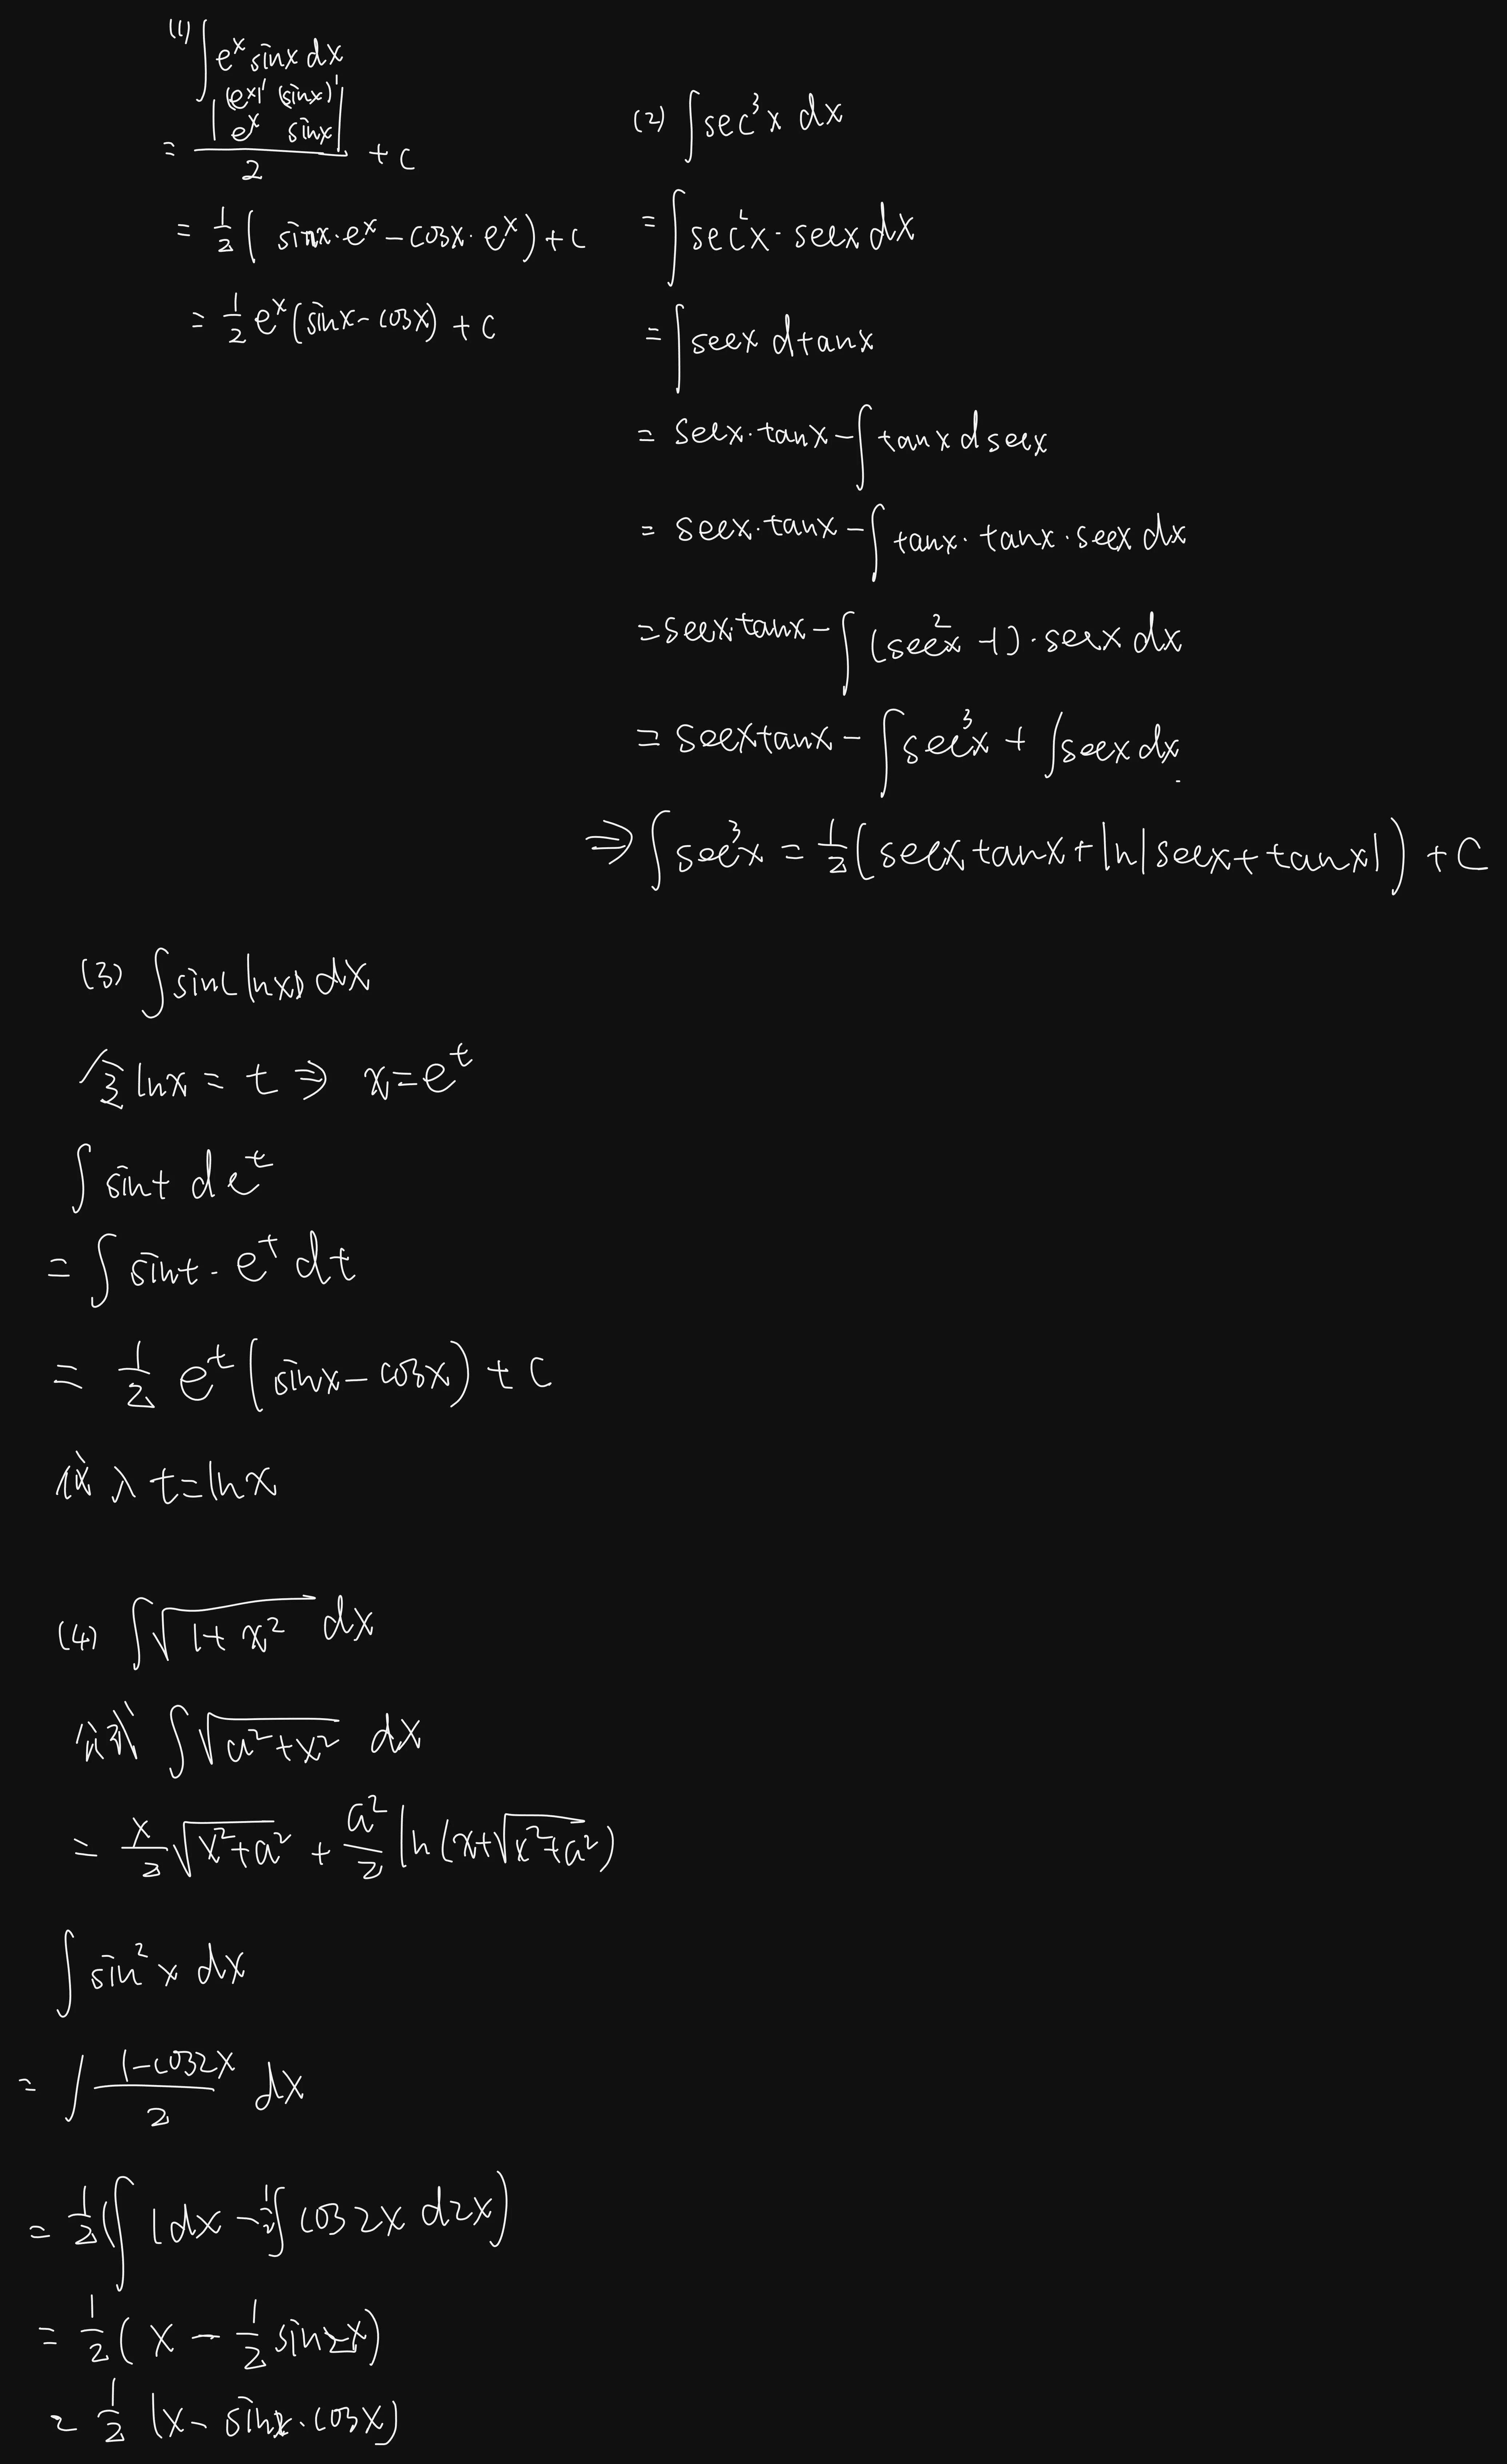 (1) ∫ e^x sinx dx
= | (e^x)' (sinx)' |
| e^x sinx | / 2 + C
= 1/2 ( sinx · e^x − cosx · e^x ) + C
= 1/2 e^x (sinx − cosx) + C
(2) ∫ sec³x dx
= ∫ sec²x · secx dx
= ∫ secx dtanx
= secx · tanx − ∫ tanx dsecx
= secx · tanx − ∫ tanx · tanx · secx dx
= secx · tanx − ∫ (sec²x − 1) · secx dx
= secx tanx − ∫ sec³x + ∫ secx dx
⇒ ∫ sec³x = 1/2 ( secx tanx + ln|secx + tanx| ) + C
(3) ∫ sin(lnx) dx
令 lnx = t ⇒ x = e^t
∫ sint de^t
= ∫ sint · e^t dt
= 1/2 e^t (sinx − cosx) + C
代入 t = lnx
(4) ∫ √(1+x²) dx
∫ √(a²+x²) dx
= x/2 √(x²+a²) + a²/2 ln(x+√(x²+a²))
∫ sin²x dx
= ∫ (1−cos2x)/2 dx
= 1/2 (∫ 1dx − 1/2 ∫ cos2x d2x)
= 1/2 ( x − 1/2 sin2x)
= 1/2 (x − sinx · cosx)